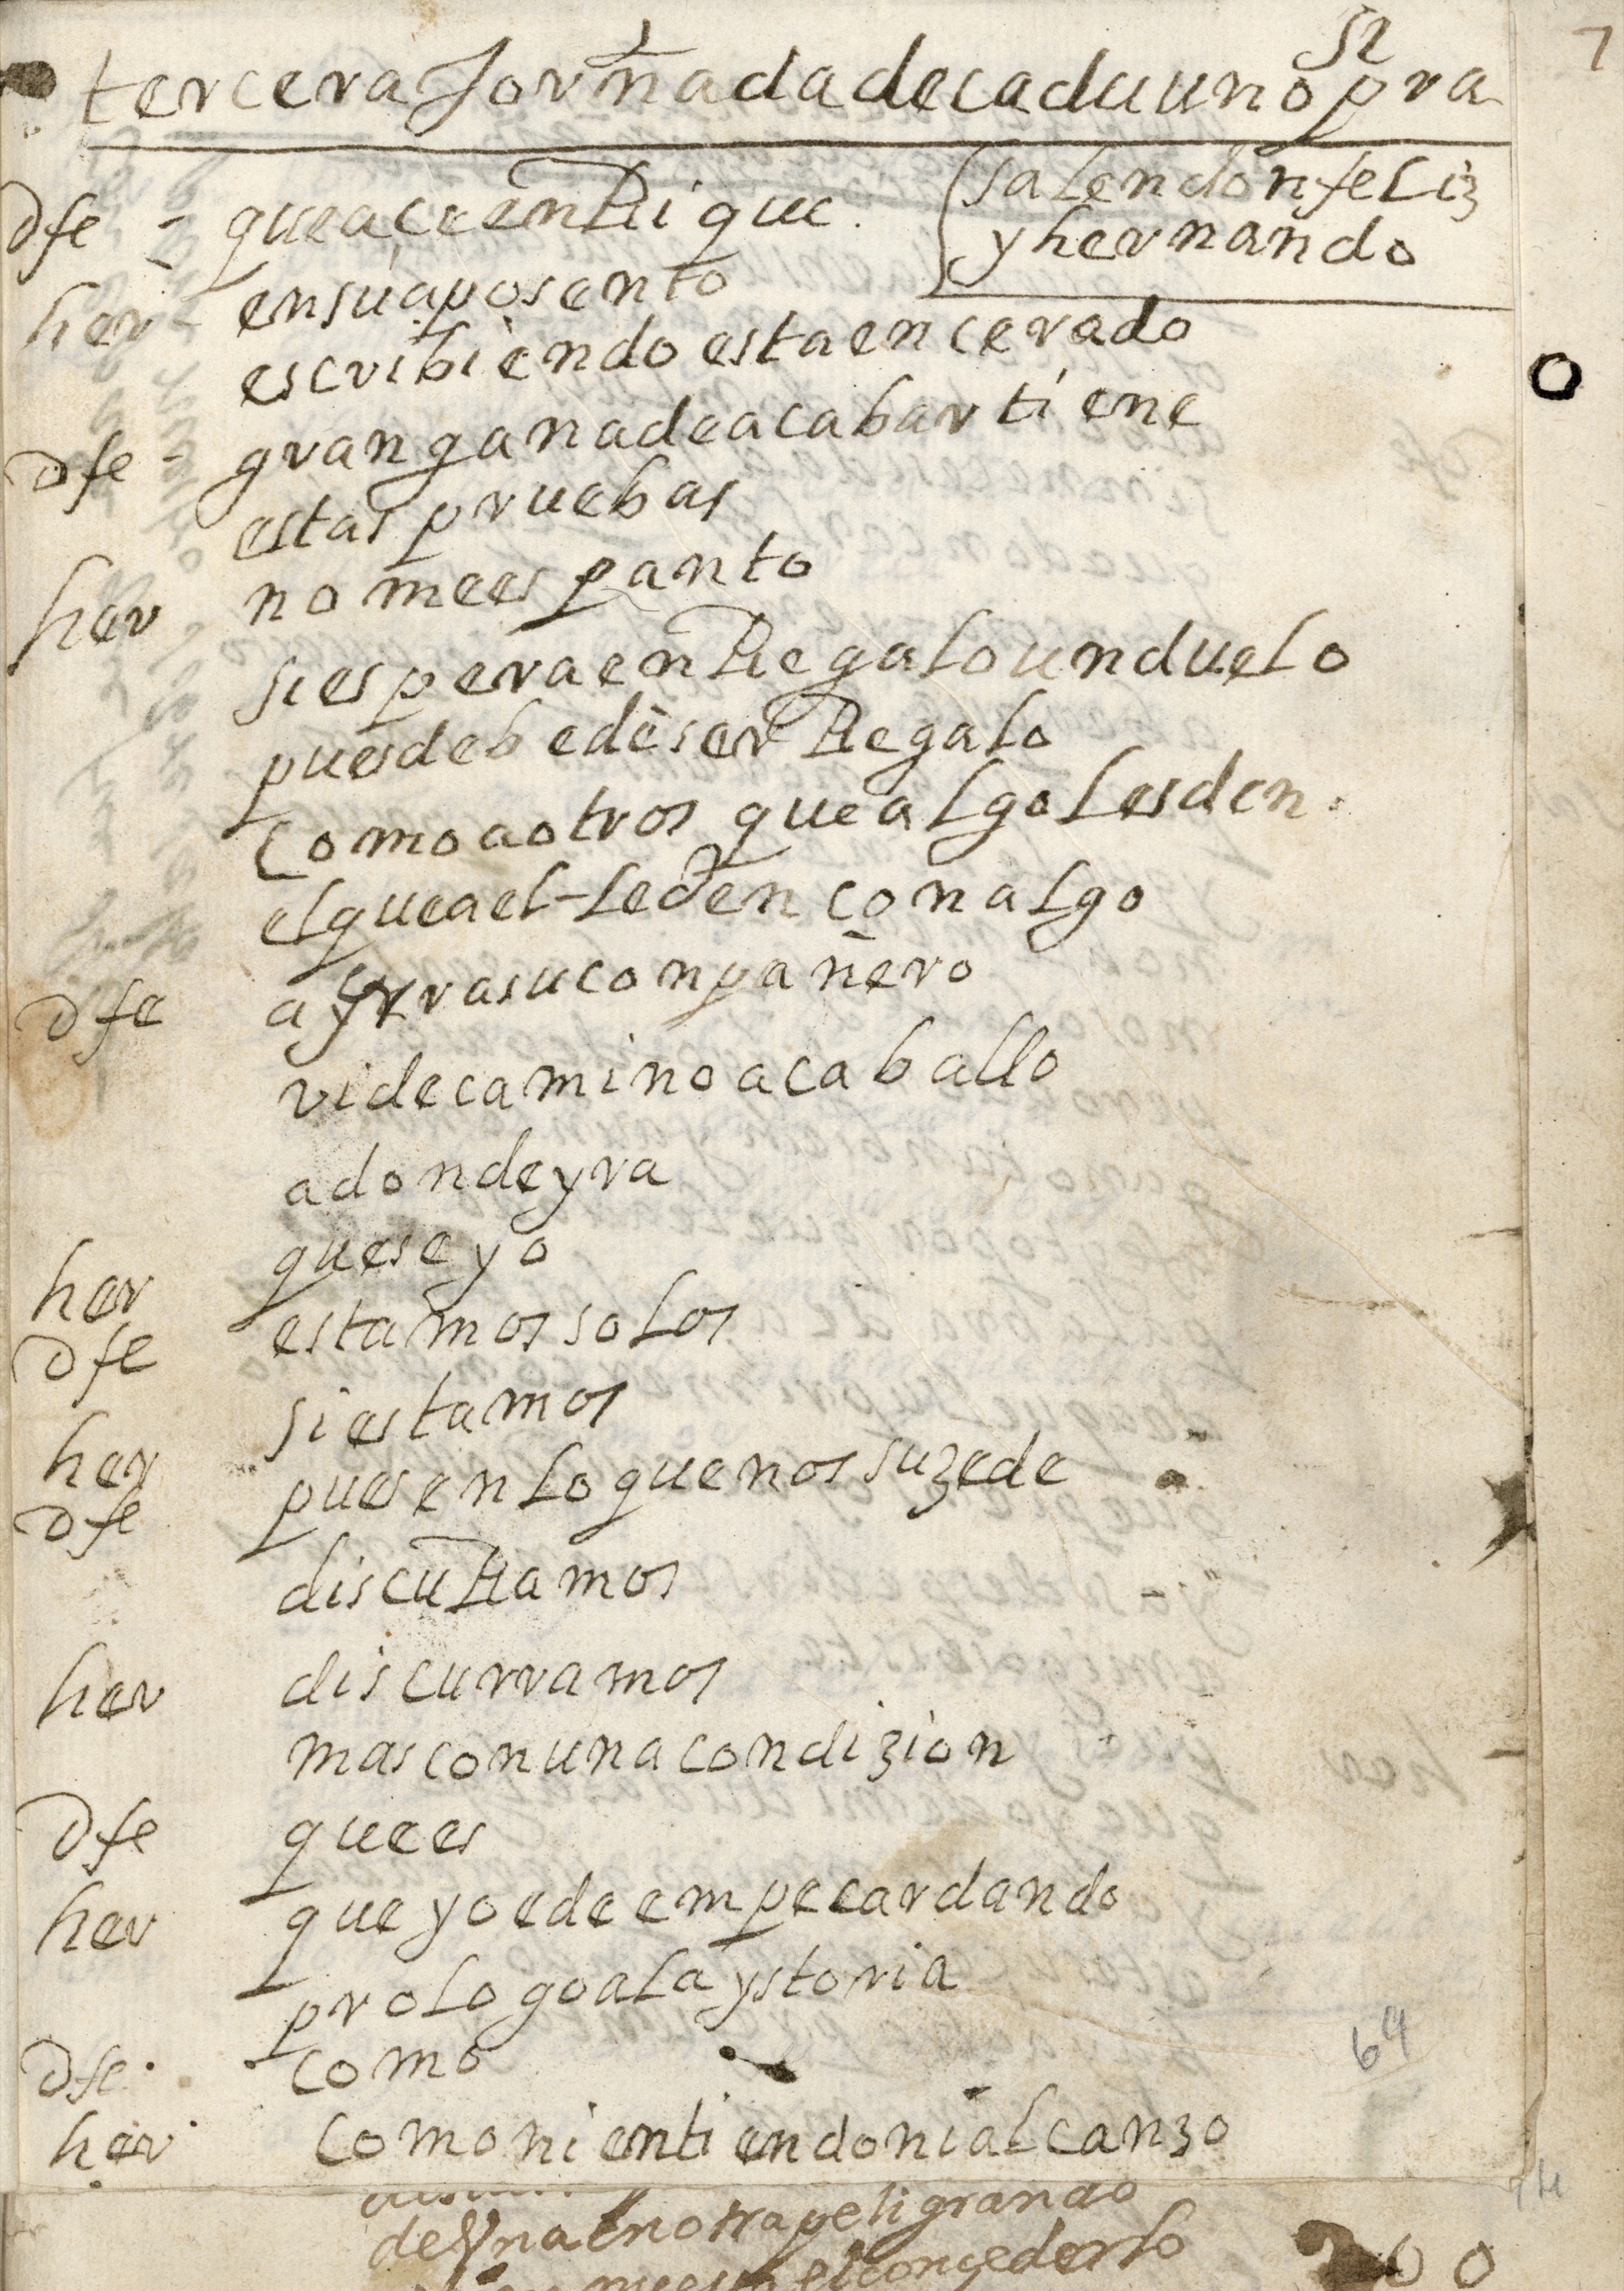 7
tercera Jornada de cada uno pra si
salen don feliz
y hernando
Dfe - que ace enRique
her - en su aposento
escribiendo esta encerado
Dfe - gran gana de acabar tiene
estas pruebas
her no me espanto
si espera en Regalo un duelo
pues debe de ser Regalo
como a otros que algo les den
el que a el le den con algo
Dfe a su conpañero
vi de camino a caballo
adonde yra
her que se yo
Dfe estamos solos
her si estamos
Dfe pues en lo que nos suzede
discuRamos
her discurramos
mas con una condizion
Dfe que es
her que yo e de empecar dando
prologo a la ystoria
Dfe como
her como ni entiendo ni alcanzo
64
de Vna en otra peligrando
concederlo